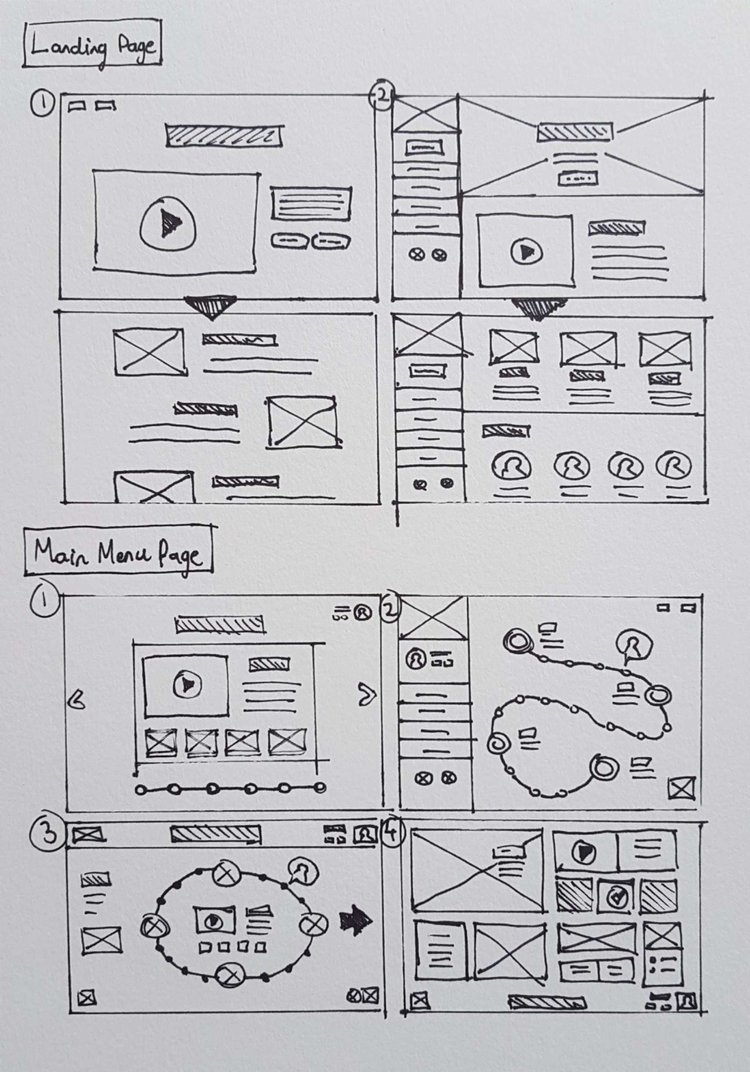 Landing Page
1 2
Main Menu Page
1 2
3 4